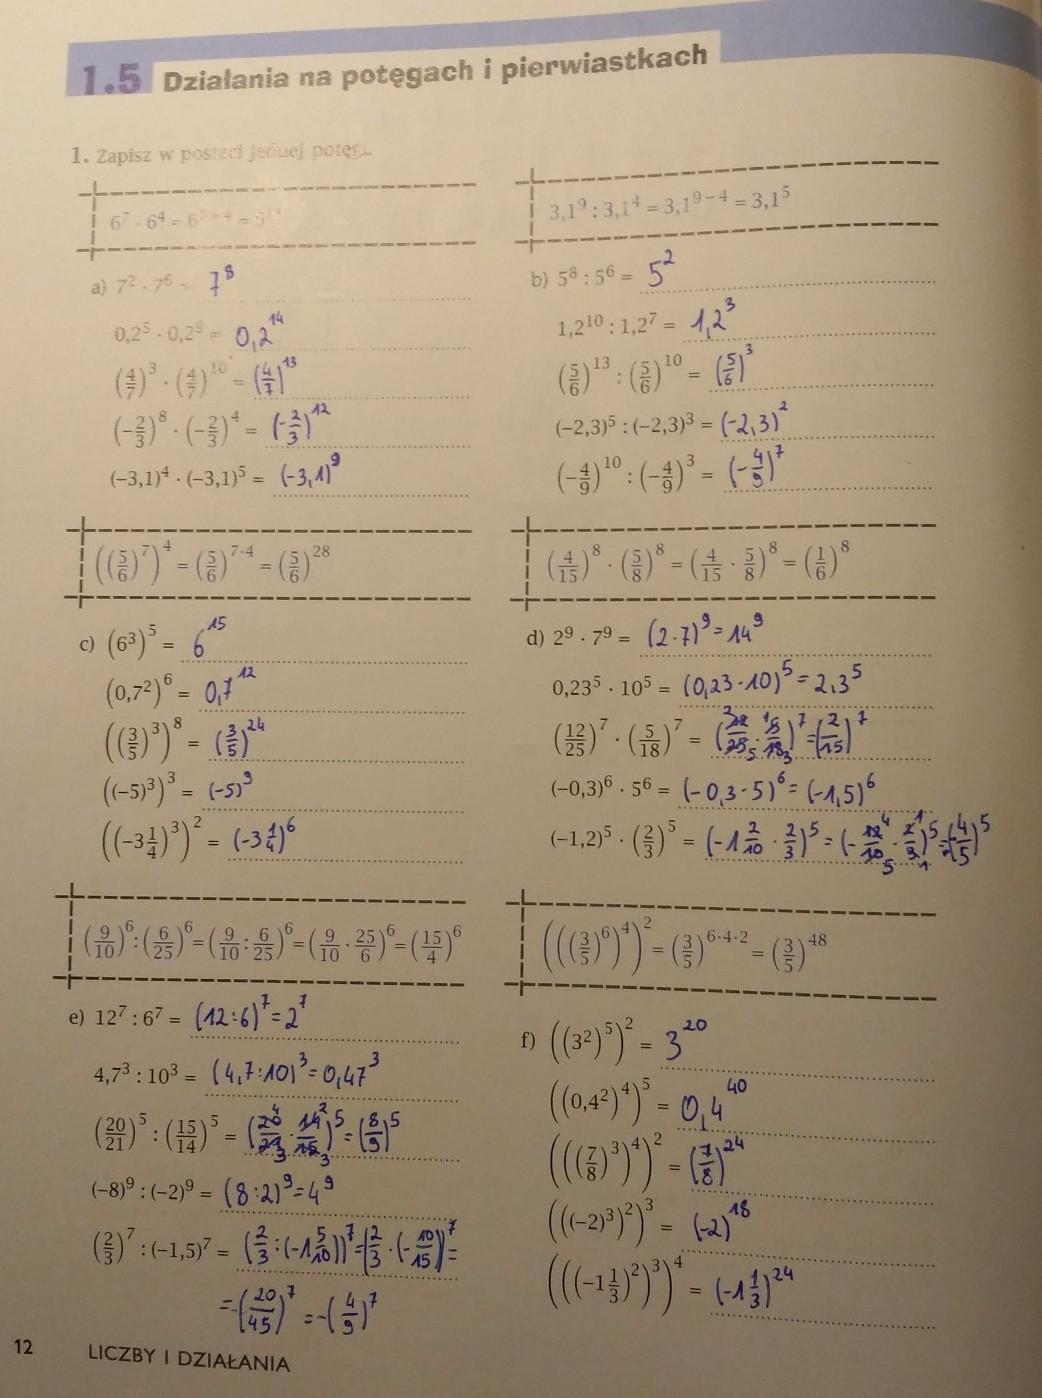 1.5 Działania na potęgach i pierwiastkach
1. Zapisz w postaci jednej potęgi.
6⁷ · 6⁴ = 6⁷⁺⁴ = 6¹¹
3,1⁹ : 3,1⁴ = 3,1⁹⁻⁴ = 3,1⁵
a) 7² · 7⁶ = 7⁸
0,2⁵ · 0,2⁹ = 0,2¹⁴
(4/7)³ · (4/7)¹⁰ = (4/7)¹³
(-2/3)⁸ · (-2/3)⁴ = (-2/3)¹²
(-3,1)⁴ · (-3,1)⁵ = (-3,1)⁹
b) 5⁸ : 5⁶ = 5²
1,2¹⁰ : 1,2⁷ = 1,2³
(5/6)¹³ : (5/6)¹⁰ = (5/6)³
(-2,3)⁵ : (-2,3)³ = (-2,3)²
(-4/9)¹⁰ : (-4/9)³ = (-4/9)⁷
((5/6)⁷)⁴ = (5/6)^7·4 = (5/6)²⁸
(4/15)⁸ · (5/8)⁸ = (4/15 · 5/8)⁸ = (1/6)⁸
c) (6³)⁵ = 6¹⁵
(0,7²)⁶ = 0,7¹²
((3/5)³)⁸ = (3/5)²⁴
((-5)³)³ = (-5)⁹
((-3 1/4)³)² = (-3 1/4)⁶
d) 2⁹ · 7⁹ = (2·7)⁹ = 14⁹
0,23⁵ · 10⁵ = (0,23·10)⁵ = 2,3⁵
(12/25)⁷ · (5/18)⁷ = (12/25 · 5/18)⁷ = (2/15)⁷
(-0,3)⁶ · 5⁶ = (-0,3·5)⁶ = (-1,5)⁶
(-1,2)⁵ · (2/3)⁵ = (-1 2/10 · 2/3)⁵ = (-12/10 · 2/3)⁵ = (-4/5)⁵
(9/10)⁶ : (6/25)⁶ = (9/10 : 6/25)⁶ = (9/10 · 25/6)⁶ = (15/4)⁶
(((3/5)⁶)⁴)² = (3/5)^6·4·2 = (3/5)⁴⁸
e) 12⁷ : 6⁷ = (12:6)⁷ = 2⁷
4,7³ : 10³ = (4,7:10)³ = 0,47³
(20/21)⁵ : (15/14)⁵ = (20/21 · 14/15)⁵ = (8/9)⁵
(-8)⁹ : (-2)⁹ = (8:2)⁹ = 4⁹
(2/3)⁷ : (-1,5)⁷ = (2/3 : (-1 5/10))⁷ = (2/3 · (-10/15))⁷ =
= -(20/45)⁷ = -(4/9)⁷
f) ((3²)⁵)² = 3²⁰
((0,4²)⁴)⁵ = 0,4⁴⁰
(((7/8)³)⁴)² = (7/8)²⁴
(((-2)³)²)³ = (-2)¹⁸
(((-1 1/3)²)³)⁴ = (-1 1/3)²⁴
12 LICZBY I DZIAŁANIA